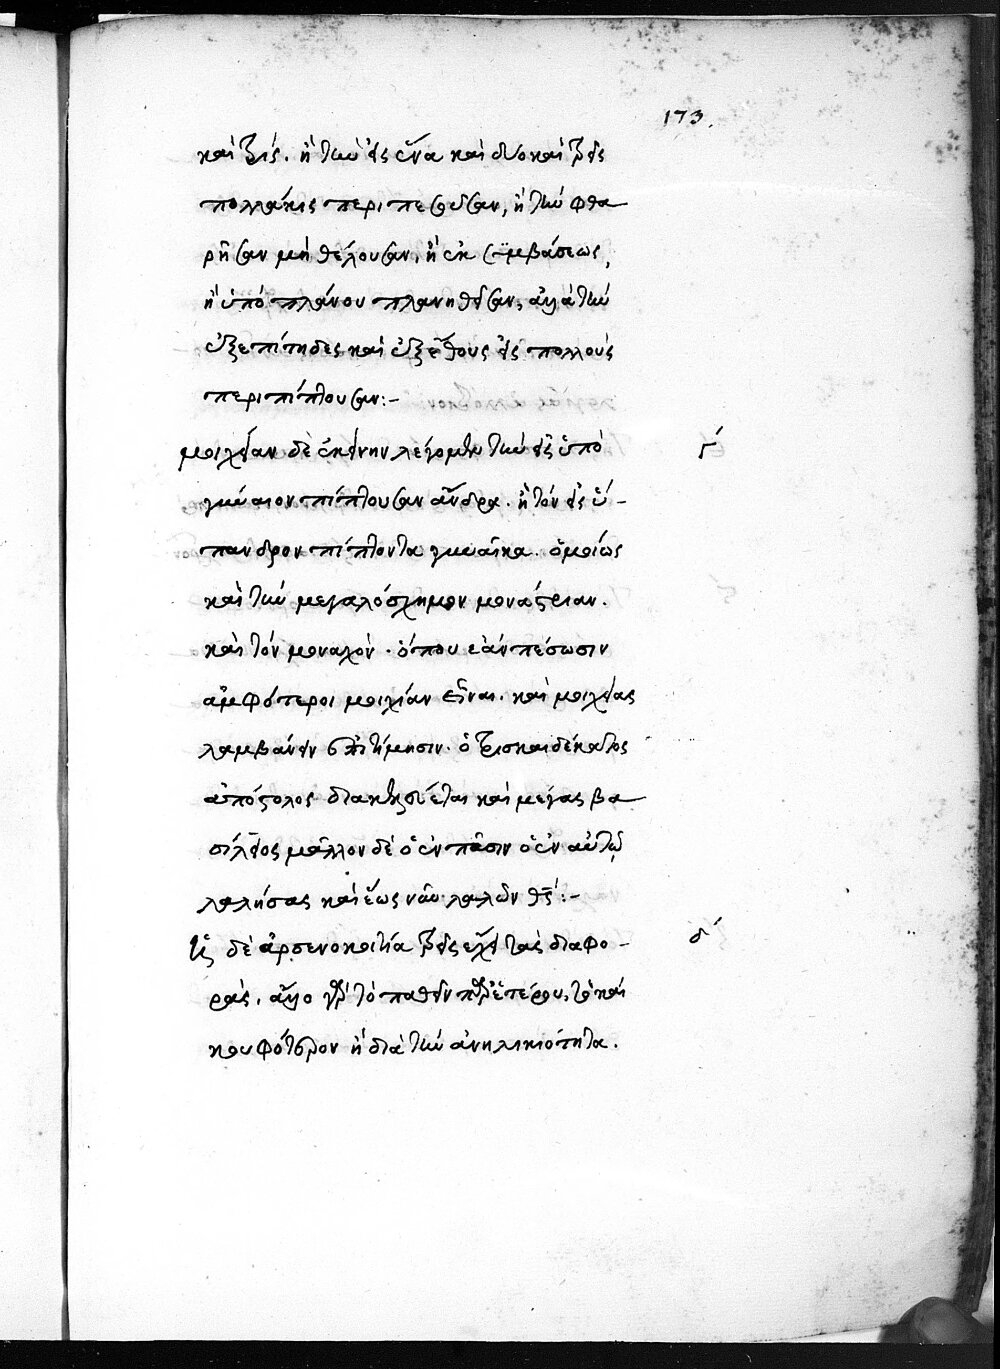 173.
καὶ τρίς. ἢ τὴν εἰς ἕνα καὶ δύο καὶ τρεῖς
πολλάκις περιπεσοῦσαν, ἢ τὴν φθα
ρῆσαν μὴ θέλουσαν, ἢ ἐκ συμβάσεως,
ἢ ὑπὸ πλάνου πλανηθεῖσαν, ἀλλὰ τὴν
ἐξεπίτηδες καὶ ἐξ ἔθους εἰς πολλοὺς
περιπίπτουσαν:-
μοιχείαν δὲ ἐκείνην λέγομεν τὴν εἰς ὑπὸ γ΄
γύναιον πίπτουσαν ἄνδρα. ἢ τὸν εἰς ὕ-
πανδρον πίπτοντα γυναῖκα. ὁμοίως
καὶ τὴν μεγαλόσχημον μονάστριαν.
καὶ τὸν μοναχὸν. ὅπου ἐὰν πέσωσιν
ἀμφότεροι μοιχίαν εἶναι. καὶ μοιχείας
λαμβάνειν ἐπιτίμησιν. ὁ τρισκαιδέκατος
ἀπόστολος καὶ μέγας βα
σίλειος μᾶλλον δὲ ὁ ἐν πᾶσιν ὁ ἐν αὐτῷ
λαλήσας καὶ ἕως νῦν λαλῶν θς:-
ἡ δὲ ἀρσενοκοιτία τρεῖς ἔχει τὰς διαφο- δ΄
ράς. ἄλλο γὰρ τὸ παθεῖν παρ' ἑτέρου, τὸ καὶ
κουφότερον ἢ διὰ τὴν ἀνηλικιότητα.